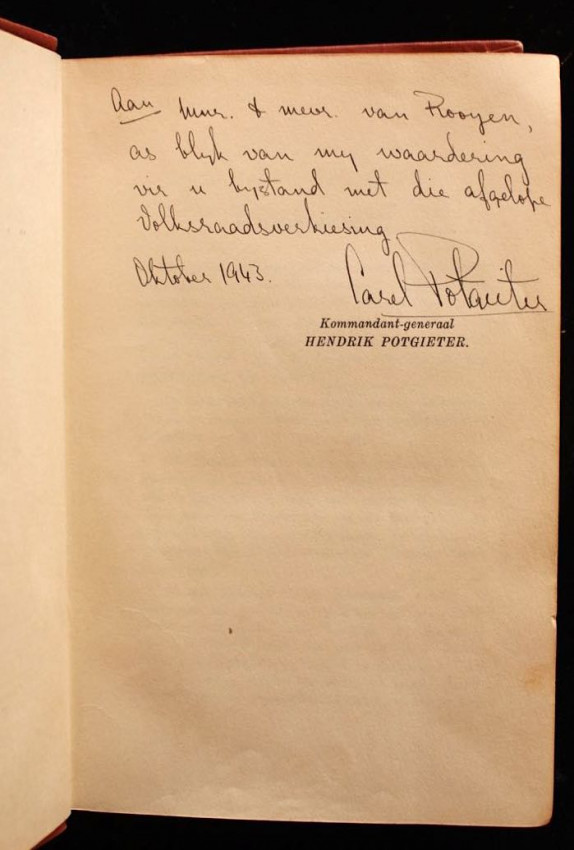 Aan mnr. & mevr. van Rooyen,
as blyk van my waardering
vir u bystand met die afgelope
Volksraadsverkiesing
Oktober 1943.
Carel Potgieter
Kommandant-generaal
HENDRIK POTGIETER.